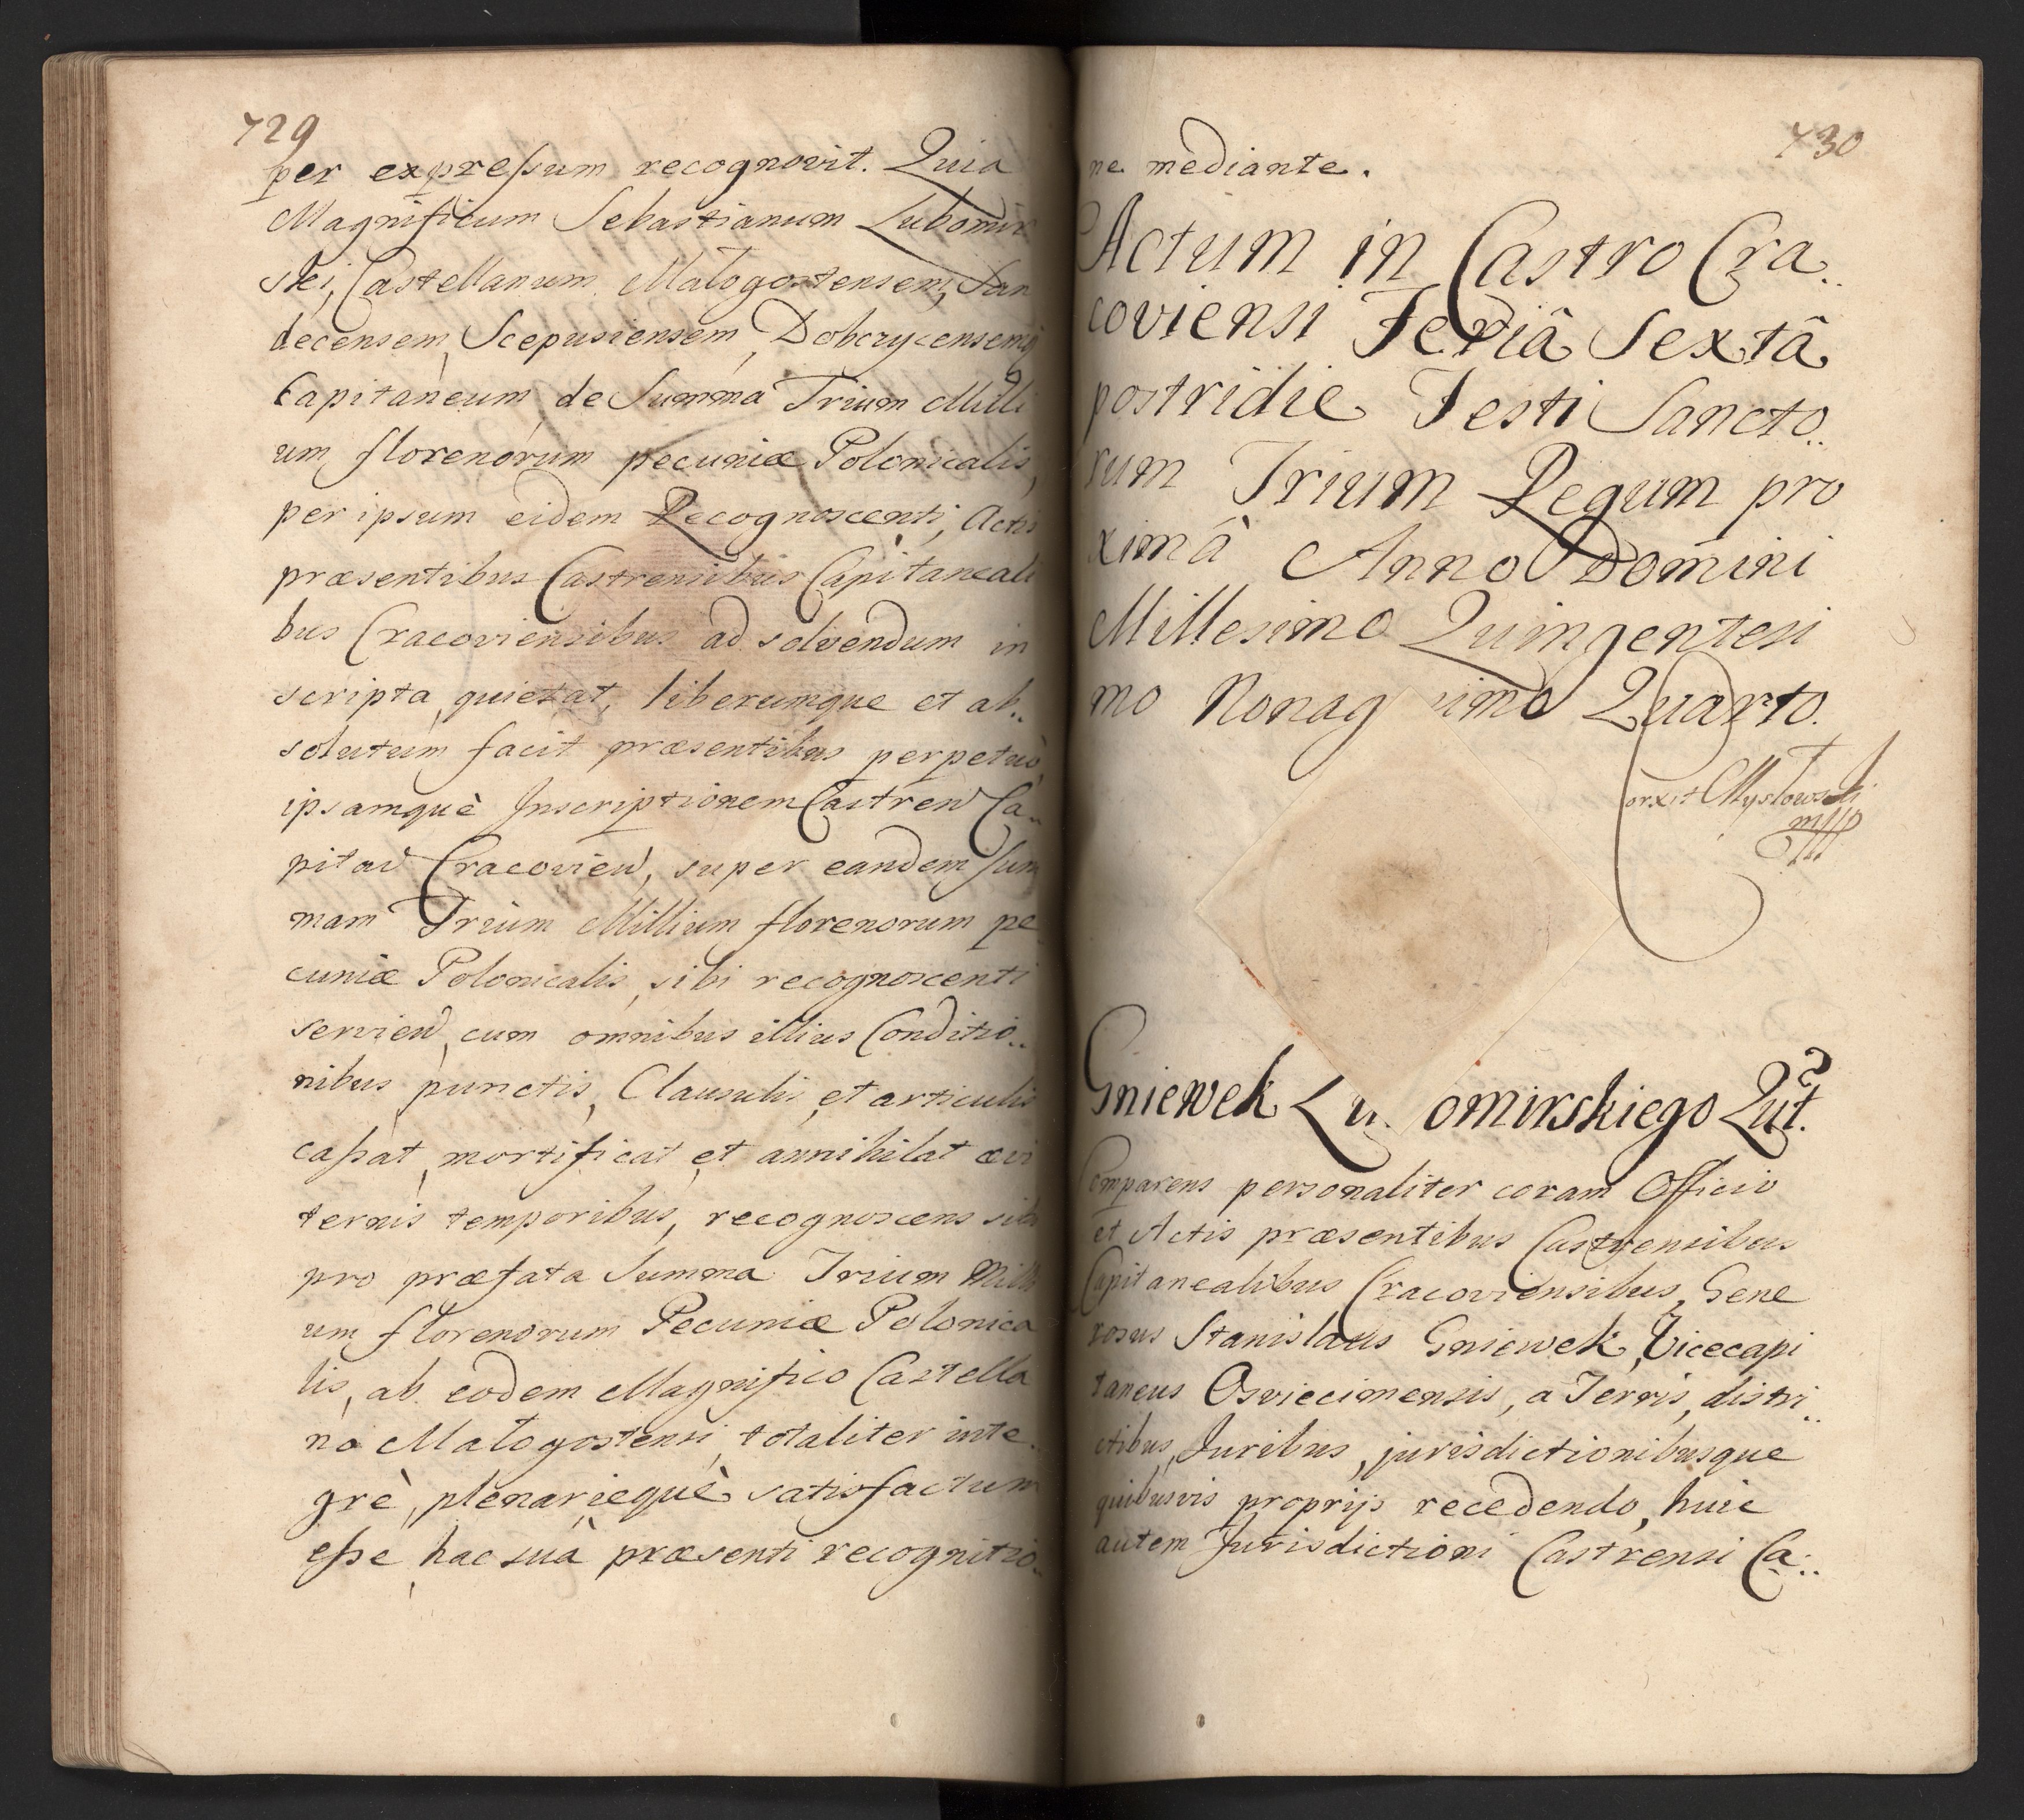 729
per expressum recognovit. Quia
Magnificum Sebastianum Lubomir
ski, Castellanum Małogostensem, San
decensem, Scepusiensem, Dobczycensemq
Capitaneum, de Summa Trium Milli
um florenorum pecuniæ Polonicalis,
per ipsum eidem Recognoscenti, Actis
præsentibus Castrensibus Capitaneali
bus Cracoviensibus ad solvendum in
scripta, quietat, liberumque et ab..
solutum facit præsentibus perpetuò,
ipsamquè Inscriptionem Castren Ca..
pitan Cracovien, super eandem Sum
mam Trium Millium florenorum pe
cuniæ Polonicalis, sibi recognoscenti
servien, cum omnibus illius Conditio..
nibus punctis, Clausulis, et articulis
cassat, mortificat et annihilat ævi
ternis temporibus, recognoscens sibi
pro præfata Summa Trium Milli
um florenorum Pecuniæ Polonica
lis, ab eodem Magnifico Castella
no Małogostensi, totaliter inte..
grè, plenarièquè satisfactum
esse, hac suà præsenti recognitio..
730
ne mediante.
Actum in Castro Cra..
coviensi Feriâ Sextâ
postridie Festi Sancto..
rum Trium Regum pro
ximâ Anno Domini
Millesimo Quingentesi
mo Nonag simo Quarto.
orxit Mysłowski
mpp
Gniewek Lu omirskiego Quit.
Comparens personaliter coram Officio
et Actis præsentibus Castrensibus
Capitanealibus Cracoviensibus, Gene
rosus Stanislaus Gniewek, Vicecapi
taneus Osviecimensis, a Terris, distri..
ctibus, Juribus, jurisdictionibusque
quibusvis proprijs recedendo, huic
autem Jurisdictioni Castrensi Ca..